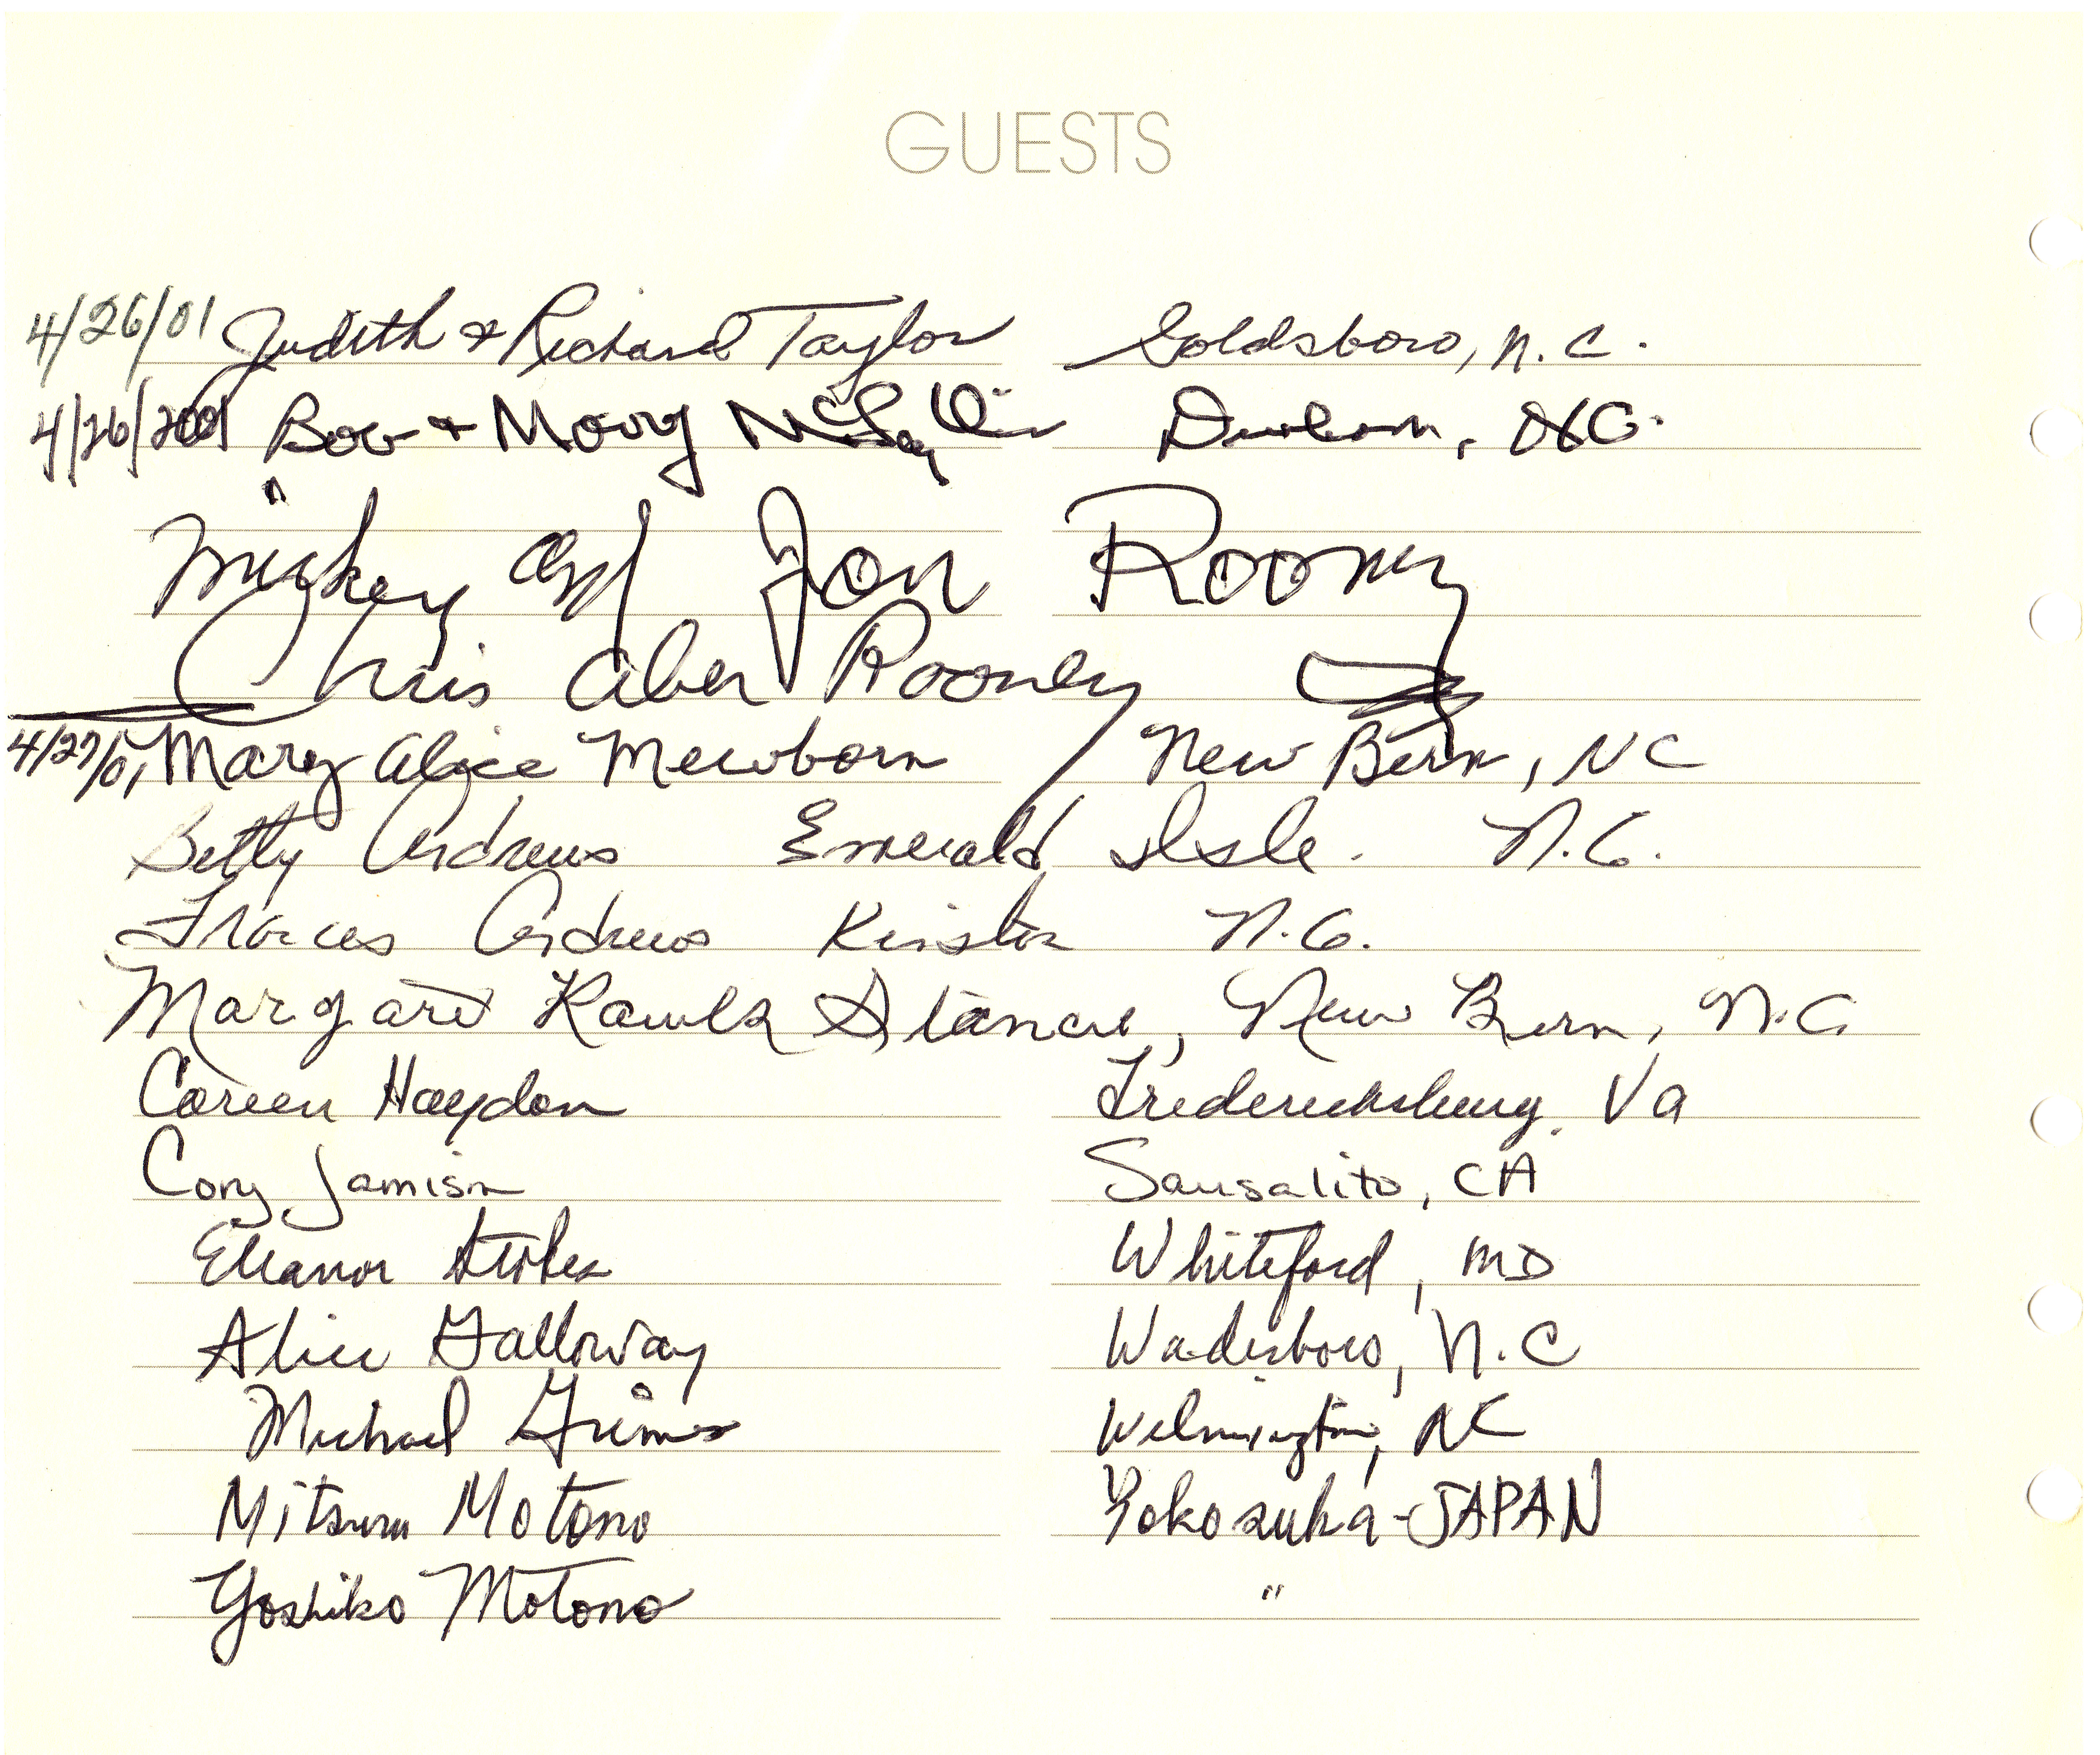 GUESTS
4/26/01 Judith & Richard Taylor Goldsboro, N.C.
4/26/2001 Bob + Mary Durham, NC.
"
Mickey and Jan Rooney
Chris Aber Rooney
4/27/01, Mary Alice Mewborn New Bern, NC
Betty Andrews Emerald Isle. N.C.
Frances Andrews Kinston N.C.
Margaret Rawls Stancil, New Bern, N.C
Coreen Haydon Fredericksburg, Va
Cory Jamison Sausalito, CA
Eleanor Stokes Whiteford, MD
Alice Galloway Wadesboro, N.C
Michael Grimes Wilmington, NC
Mitsuru Motono Yokosuka-JAPAN
Yoshiko Motono "